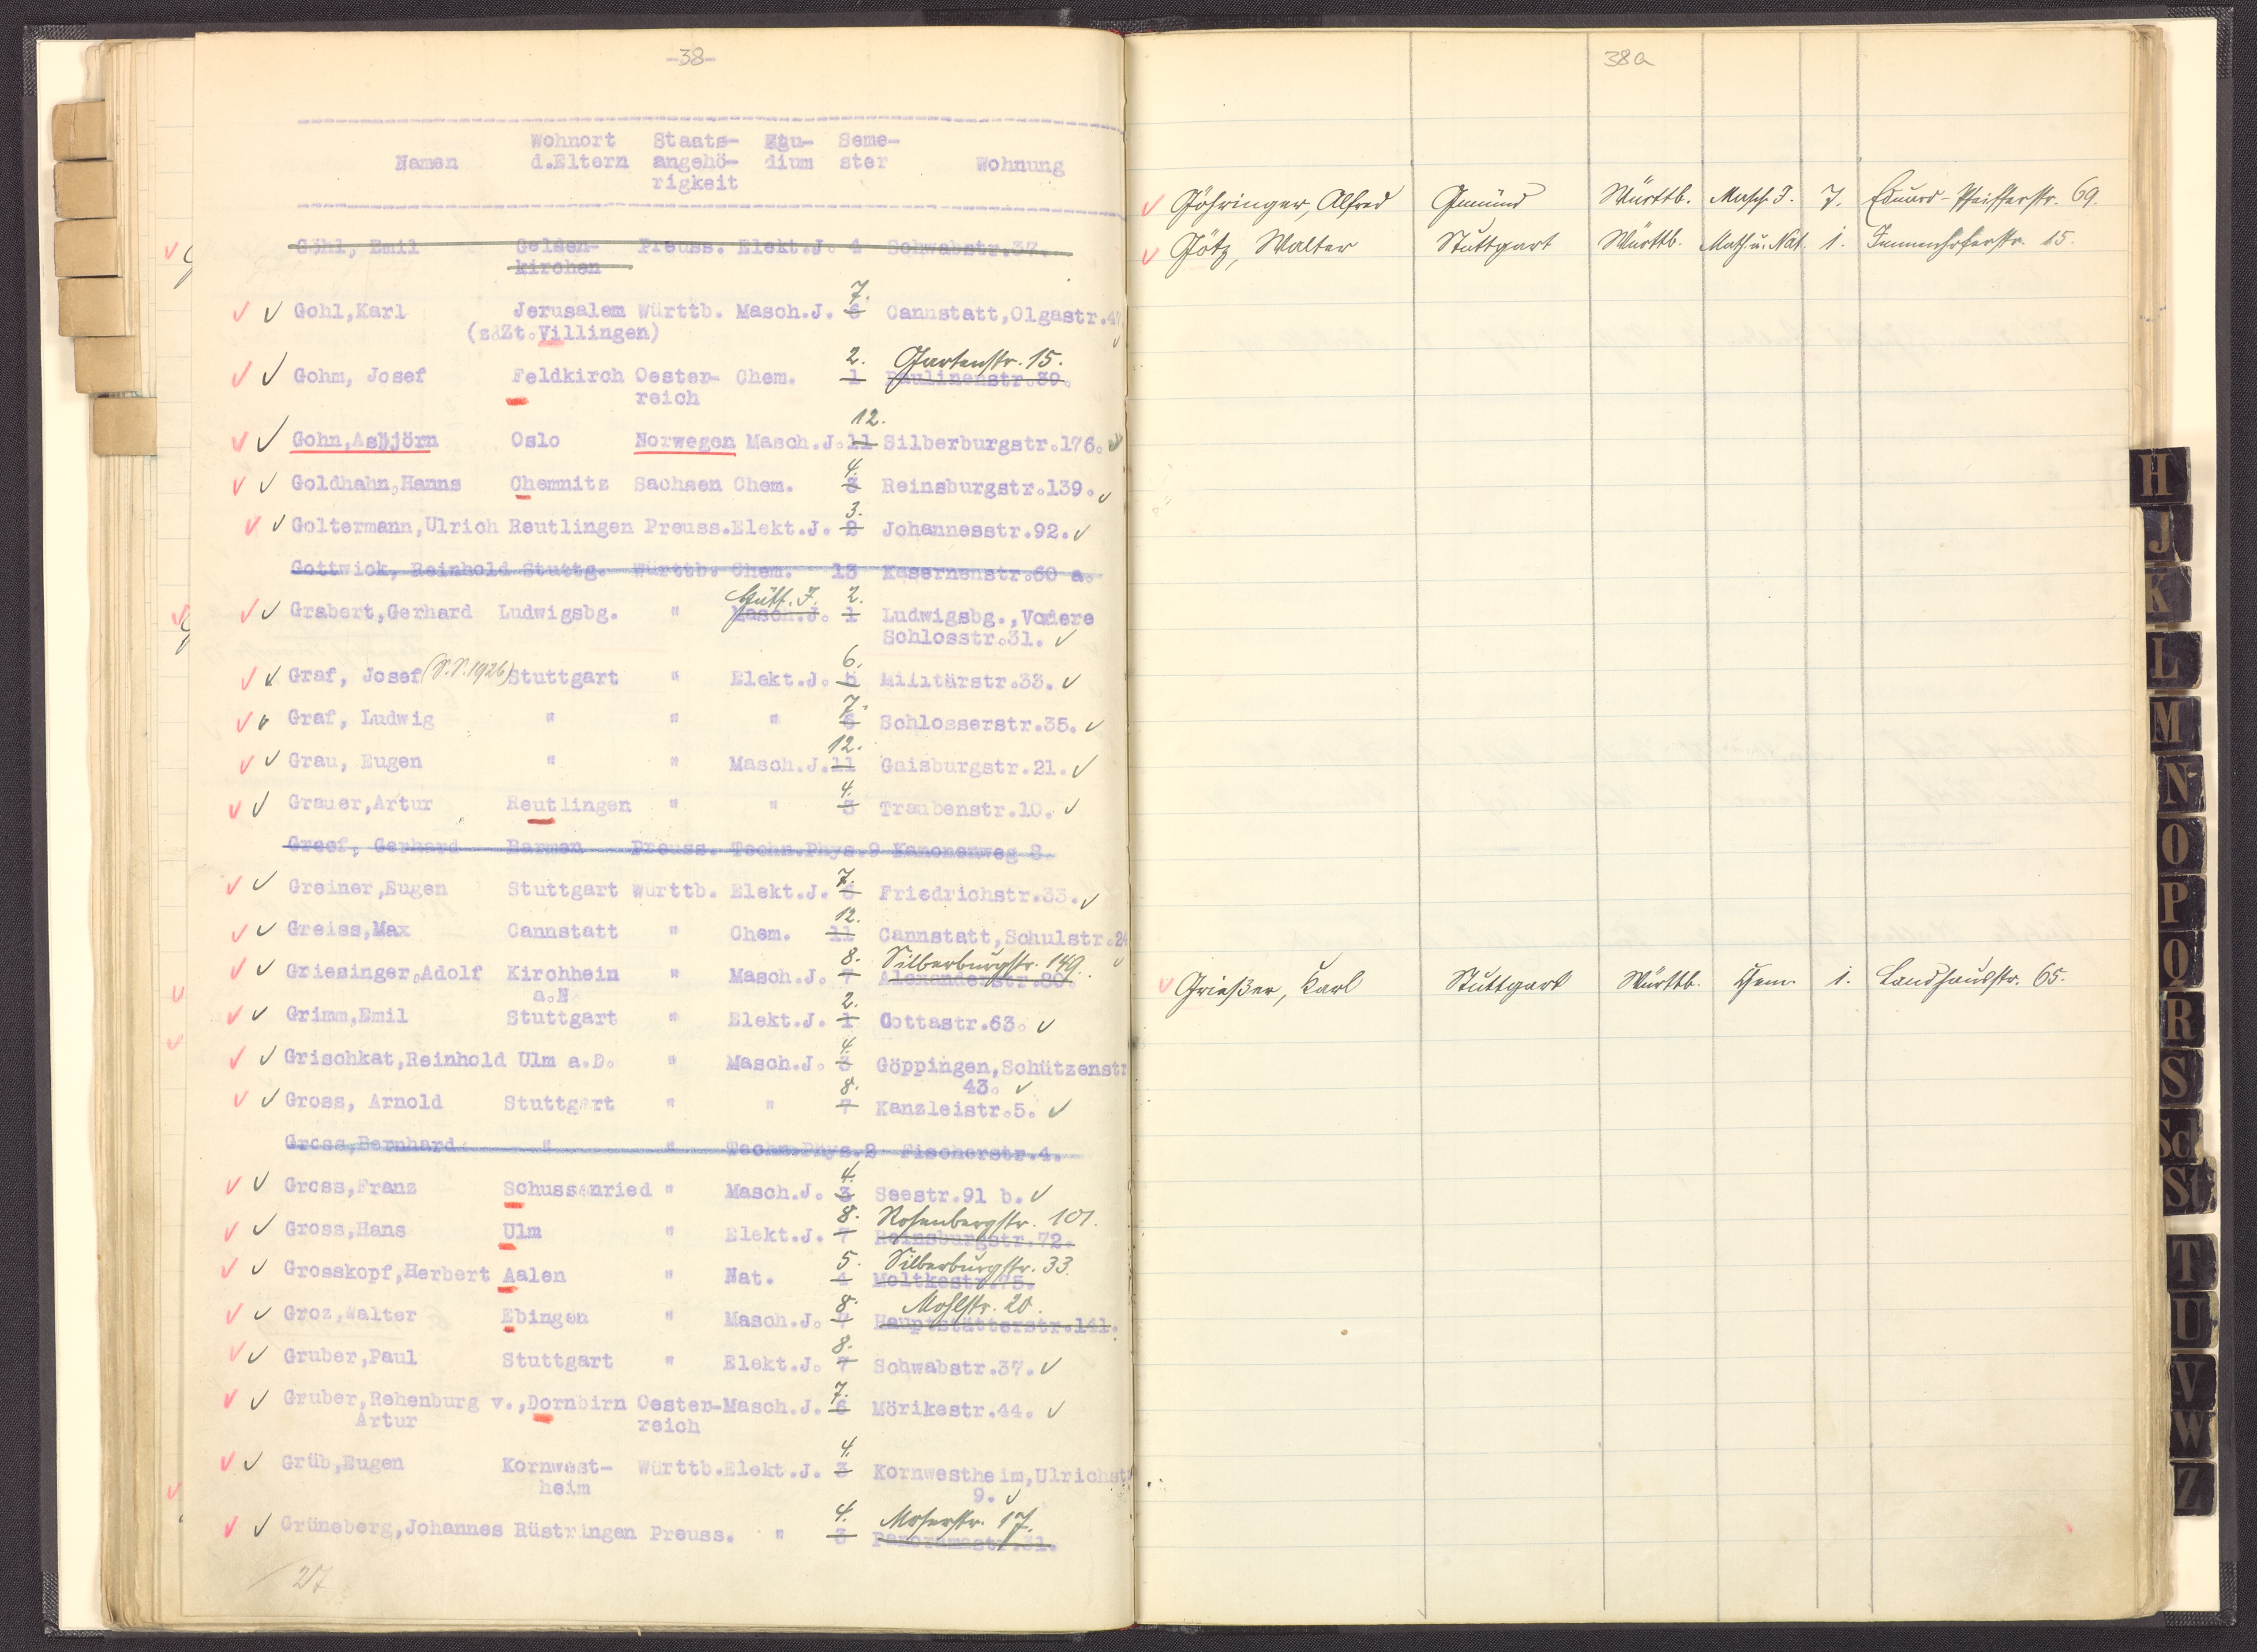 -38-
Wohnort Staats- Stu- Seme-
Namen d.Eltern angehö- dium ster Wohnung
rigkeit
Göhl, Emil Gelsen- Preuss. Elekt.J. 4 Schwabstr.37.
kirchen
7.
Gohl,Karl Jerusalem Württb. Masch.J. 6 Cannstatt,Olgastr.47
(z.Zt.Villingen)
2. Gartenstr. 15.
Gohm, Josef Feldkirch Oester- Chem. 1 Paulinenstr.39.
reich
12.
Gohn,Asbjörn Oslo Norwegen Masch.J.11 Silberburgstr.176.
4.
Goldhahn,Hanns Chemnitz Sachsen Chem. 3 Reinsburgstr.139.
3.
Goltermann,Ulrich Reutlingen Preuss.Elekt.J. 2 Johannesstr.92.
Gottwick, Reinhold Stuttg. Württb. Chem. 13 Kasernenstr.60 a.
Hütt. J. 2.
Grabert,Gerhard Ludwigsbg. " Masch.J. 1 Ludwigsbg.,Vordere
Schlosstr.31.
6.
Graf, Josef (S.S.1926) Stuttgart " Elekt.J. 5 Militärstr.33.
7.
Graf, Ludwig " " " 6 Schlosserstr.35.
12.
Grau, Eugen " " Masch.J.11 Gaisburgstr.21.
4.
Grauer,Artur Reutlingen " " 3 Traubenstr.10.
Greef, Gerhard Barmen Preuss. Techn.Phys.9 Kanonenweg 8.
7.
Greiner,Eugen Stuttgart Württb. Elekt.J. 6 Friedrichstr.33.
12.
Greiss,Max Cannstatt " Chem. 11 Cannstatt,Schulstr.24
8. Silberburgstr. 149.
Griesinger,Adolf Kirchhein " Masch.J. 7 Alexanderstr.80.
a.N.
2.
Grimm,Emil Stuttgart " Elekt.J. 1 Cottastr.63.
4.
Grischkat,Reinhold Ulm a.D. " Masch.J. 3 Göppingen,Schützenstr
43.
8.
Gross, Arnold Stuttgart " " 7 Kanzleistr.5.
Gross,Bernhard " " Techn.Phys.2 Fischerstr.4.
4.
Gross,Franz Schussenried " Masch.J. 3 Seestr.91 b.
8. Rosenbergstr. 101.
Gross,Hans Ulm " Elekt.J. 7 Reinsburgstr.72.
5. Silberburgstr. 33.
Grosskopf,Herbert Aalen " Nat. 4 Moltkestr.75.
8. Mohlstr. 20.
Groz,Walter Ebingen " Masch.J. 7 Hauptstätterstr.141.
8.
Gruber,Paul Stuttgart " Elekt.J. 7 Schwabstr.37.
7.
Gruber,Rehenburg v.,Dornbirn Oester-Masch.J. 6 Mörikestr.44.
Artur reich
4.
Grüb,Eugen Kornwest- Württb.Elekt.J. 3 Kornwestheim,Ulrichst
heim 9.
4. Moserstr. 17.
Grüneberg,Johannes Rüstringen Preuss. " 3 Panoramastr.31.
27
38a
Göhringer, Alfred Gmünd Württb. Masch. J. 7. Eduard-Pfeifferstr. 69.
Götz, Walter Stuttgart Württb. Math u. Nat. 1. Immenhoferstr. 15.
Grießer, Karl Stuttgart Württb. Chem. 1. Landhausstr. 65.
H
J
K
L
M
N
O
P
Q
R
S
Sch
St
T
U
V
W
Z